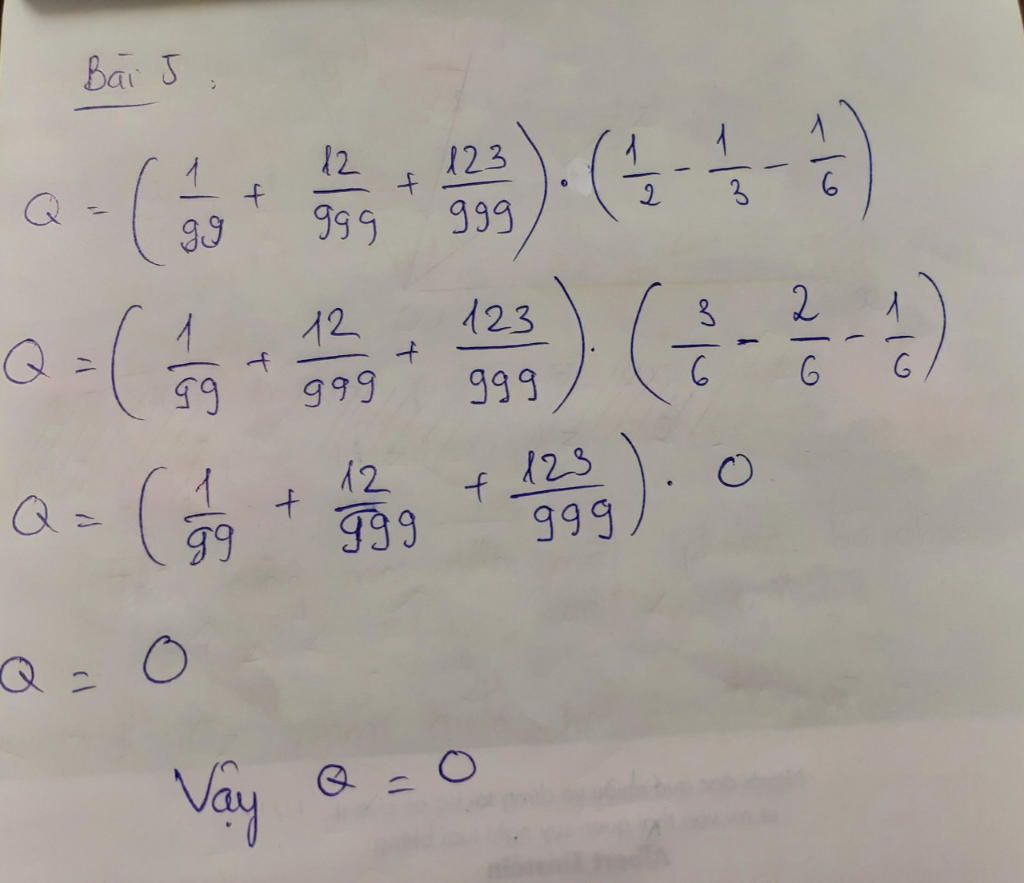 Bài 5.
Q = (1/99 + 12/999 + 123/999) . (1/2 - 1/3 - 1/6)
Q = (1/99 + 12/999 + 123/999) . (3/6 - 2/6 - 1/6)
Q = (1/99 + 12/999 + 123/999) . 0
Q = 0
Vậy Q = 0
Albert Einstein